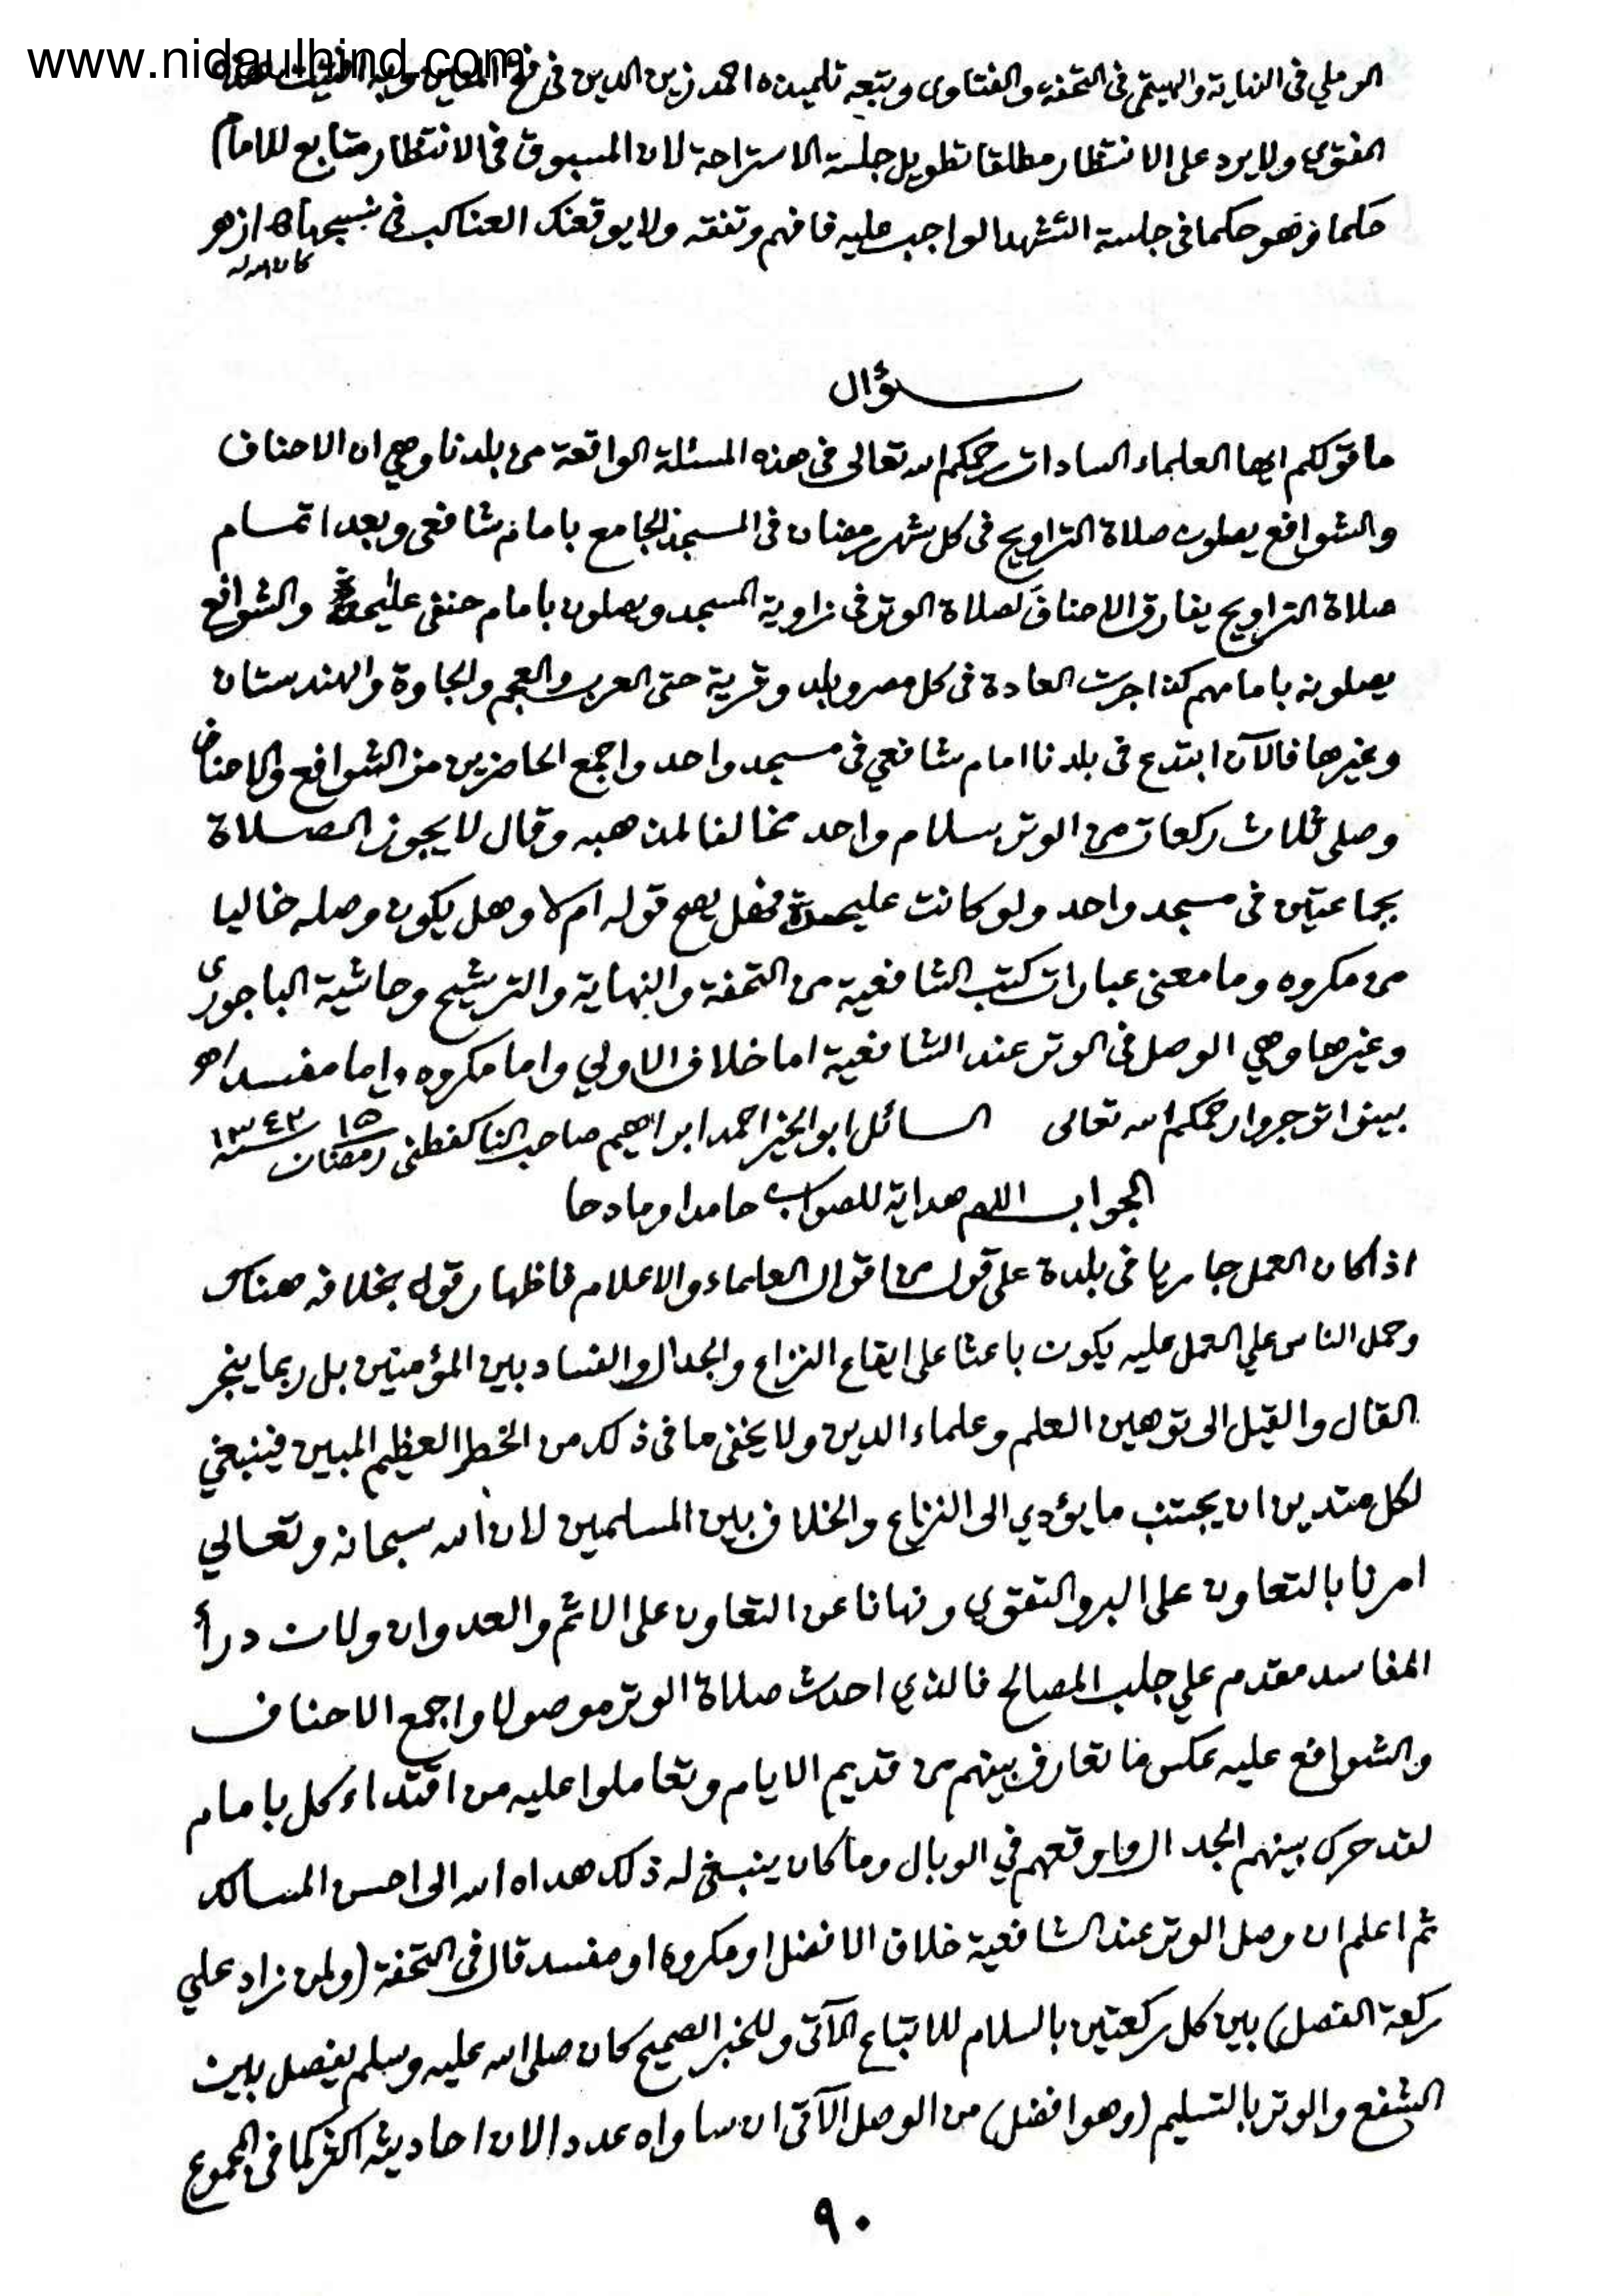 www.nidaulhind.com
الرملي في النهاية والهيتمي في التحفة والفتاوى وتبعه تلميذه احمد زين الدين في فتح المعين وبه افتيت هذه
الفتوى ولا يرد على الانتظار مطلقا تطويل جلسة الاستراحة لان المسبوق في الانتظار متابع للامام
حكما فهو حكما في جلسة التشهد الواجب عليه فافهم وتفقه ولا يوقعنك العناكب في نسيجها اه ازهر
كان الله له
سؤال
ما قولكم ايها العلماء السادات رحمكم الله تعالى في هذه المسئلة الواقعة من بلدنا وهي ان الاحناف
والشوافع يصلون صلاة التراويح في كل شهر رمضان في المسجد الجامع بامام شافعي وبعد اتمام
صلاة التراويح يفارق الاحناف لصلاة الوتر في زاوية المسجد ويصلون بامام حنفي عليحدة والشوافع
يصلونه بامامهم كذا جرت العادة في كل مصر وبلد وقرية حتى العرب والعجم والجاوة والهندستان
وغيرها فالآن ابتدع في بلدنا امام شافعي في مسجد واحد واجمع الحاضرين من الشوافع والاحناف
وصلى ثلاث ركعات من الوتر بسلام واحد مخالفا لمذهبه وقال لا يجوز الصلاة
بجماعتين في مسجد واحد ولو كانت عليحدة فهل يصح قوله ام لا وهل يكون وصله خاليا
من مكروه وما معنى عبارات كتب الشافعية من التحفة والنهاية والترشيح وحاشية الباجوري
وغيرها وهي الوصل في الوتر عند الشافعية اما خلاف الاولي واما مكروه واما مفسد اهـ
بينوا توجروا رحمكم الله تعالى السائل ابو الخير احمد ابراهيم صاحب الناكفطني ١٥ رمضان سنة ١٣٤٣
الجواب اللهم هداية للصواب حامدا ومادحا
اذا كان العمل جاريا في بلدة على قول من اقوال العلماء والاعلام فاظهار قول بخلافه هناك
وحمل الناس علي العمل عليه يكون باعثا على ايقاع النزاع والجدال والفساد بين المؤمنين بل ربما ينجر
القال والقيل الى توهين العلم وعلماء الدين ولا يخفى ما في ذلك من الخطر العظيم المبين فينبغي
لكل متدين ان يجتنب ما يؤدي الى النزاع والخلاف بين المسلمين لان الله سبحانه وتعالي
امرنا بالتعاون على البر والتقوي ونهانا عن التعاون على الاثم والعدوان ولان درأ
المفاسد مقدم علي جلب المصالح فالذي احدث صلاة الوتر موصولا واجمع الاحناف
والشوافع عليه عكس ما تعارف بينهم من قديم الايام وتعاملوا عليه من اقتداء كل بامام
لقد حرك بينهم الجدال واوقعهم في الوبال وما كان ينبغي له ذلك هداه الله الى احسن المسالك
ثم اعلم ان وصل الوتر عند الشافعية خلاف الافضل او مكروه او مفسد قال في التحفة (ولمن زاد علي
ركعة الفصل) بين كل ركعتين بالسلام للاتباع الآتي وللخبر الصحيح كان صلى الله عليه وسلم يفصل بين
الشفع والوتر بالتسليم (وهو افضل) من الوصل الآتي ان ساواه عددا لان احاديثه اكثر كما في المجموع
٩٠